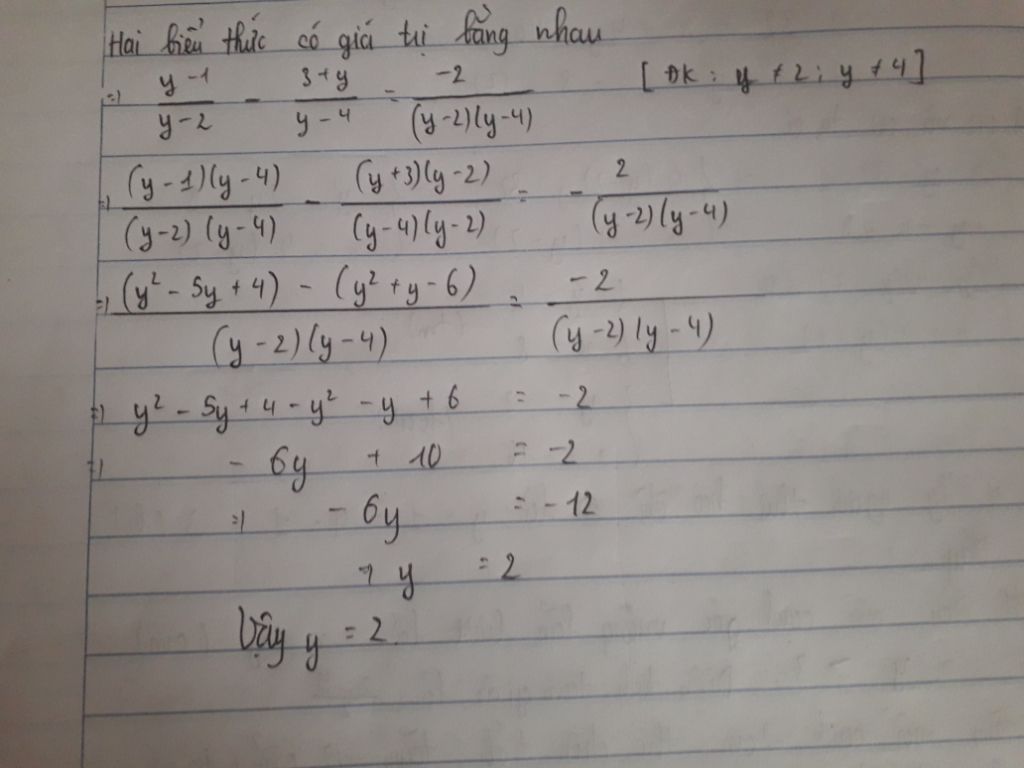 Hai biểu thức có giá trị bằng nhau
=> (y-1)/(y-2) - (3+y)/(y-4) = -2/((y-2)(y-4)) [ĐK: y ≠ 2; y ≠ 4]
=> ((y-1)(y-4))/((y-2)(y-4)) - ((y+3)(y-2))/((y-4)(y-2)) = - 2/((y-2)(y-4))
=> ((y² - 5y + 4) - (y² + y - 6))/((y-2)(y-4)) = -2/((y-2)(y-4))
=> y² - 5y + 4 - y² - y + 6 = -2
=> - 6y + 10 = -2
=> - 6y = -12
=> y = 2
Vậy y = 2